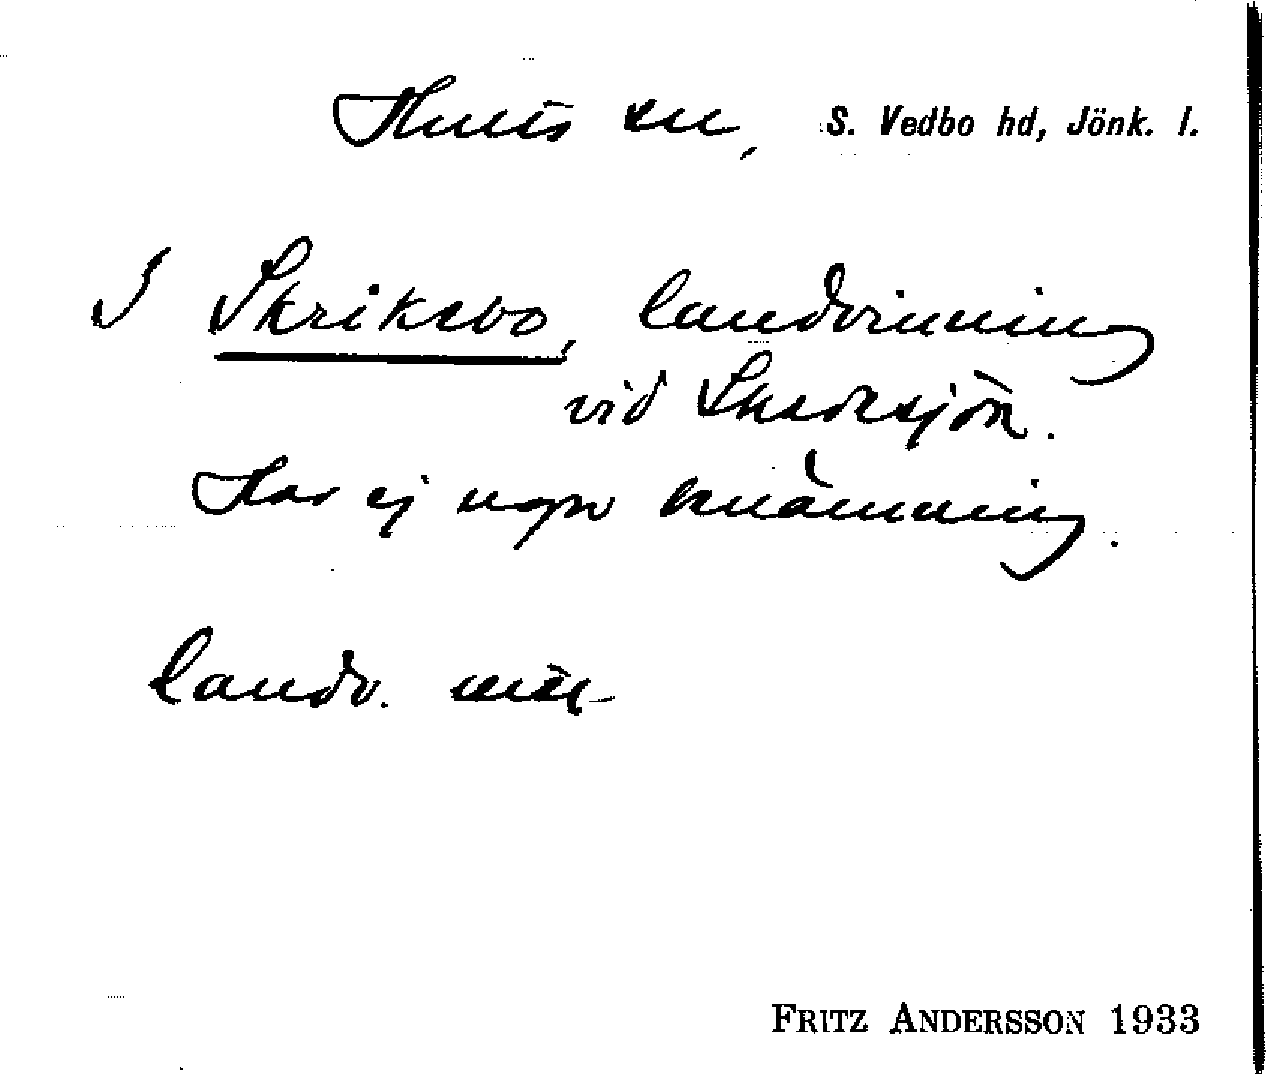 Hults sn, S. Vedbo hd, Jönk. l.
I Skrikebo, landvinning
vid
Har ej ngn benämning.
landv.
FRITZ ANDERSSON 1933